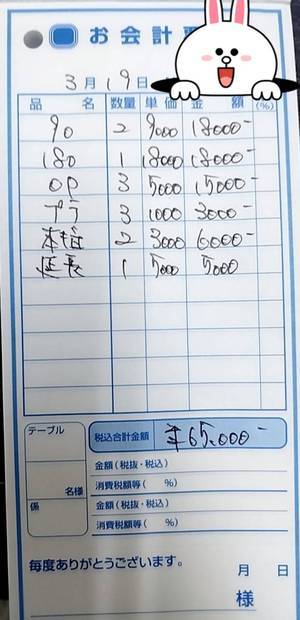 お会計
3月19日
品 名 数量 単価 金 額 (%)
90 2 9000 18000-
180 1 18000 18000-
OP 3 5000 15000-
プラ 3 1000 3000-
本指 2 3000 6000-
延長 1 5000 5000
テーブル
税込合計金額 ¥65.000-
名様
金額(税抜・税込)
消費税額等( %)
係
金額(税抜・税込)
消費税額等( %)
毎度ありがとうございます。 月 日
様